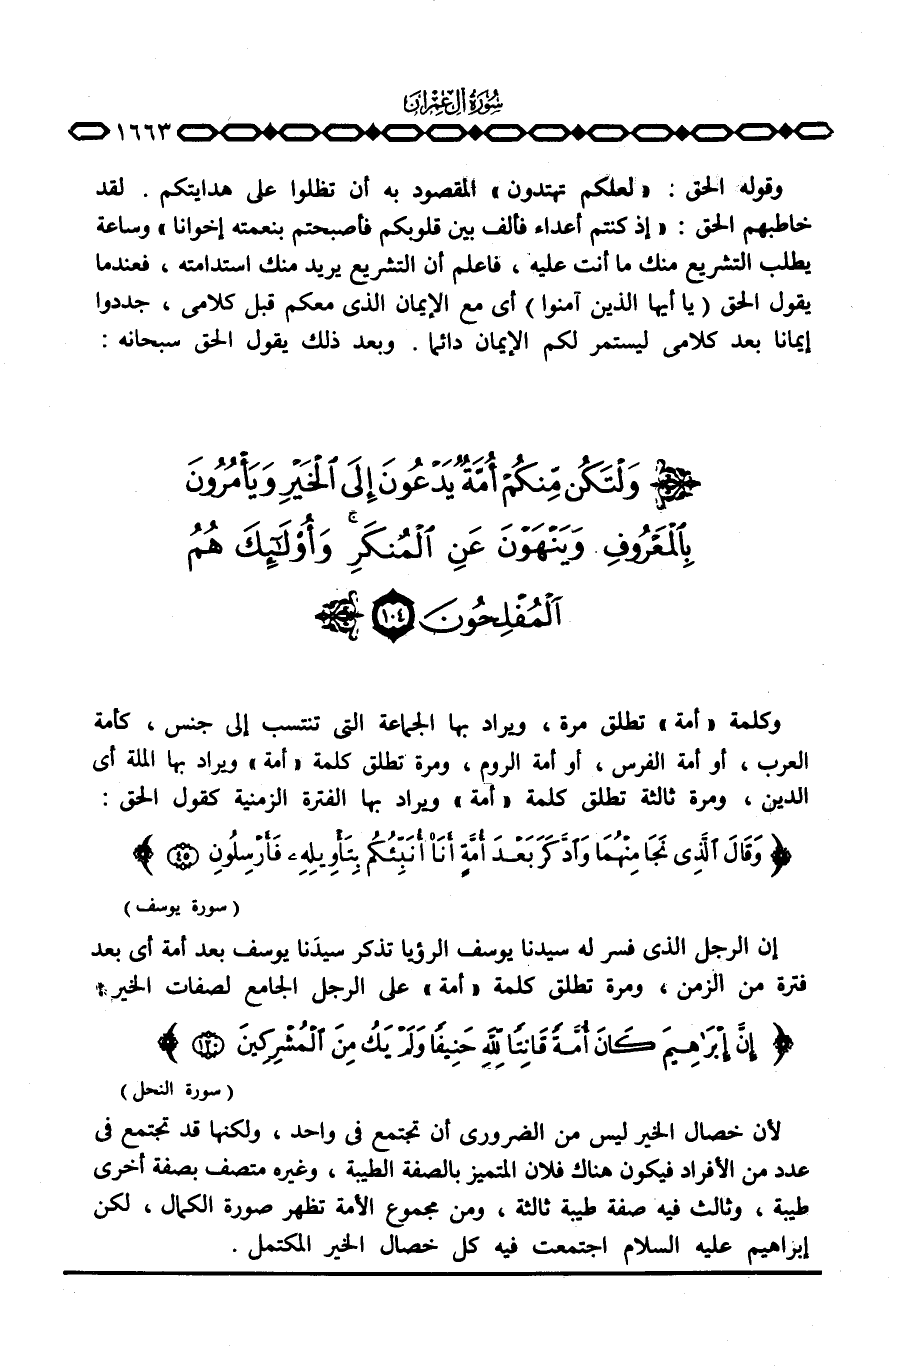 سُورَةُ آلِ عِمْرَانَ
١٦٦٣
وقوله الحق : « لعلكم تهتدون » المقصود به أن تظلوا على هدايتكم . لقد
خاطبهم الحق : « إذ كنتم أعداء فألف بين قلوبكم فأصبحتم بنعمته إخوانا » وساعة
يطلب التشريع منك ما أنت عليه ، فاعلم أن التشريع يريد منك استدامته ، فعندما
يقول الحق ( يا أيها الذين آمنوا ) أى مع الإيمان الذى معكم قبل كلامى ، جددوا
إيمانا بعد كلامى ليستمر لكم الإيمان دائما . وبعد ذلك يقول الحق سبحانه :
وَلْتَكُن مِّنكُمْ أُمَّةٌ يَدْعُونَ إِلَى ٱلْخَيْرِ وَيَأْمُرُونَ
بِٱلْمَعْرُوفِ وَيَنْهَوْنَ عَنِ ٱلْمُنكَرِ ۚ وَأُوْلَـٰٓئِكَ هُمُ
ٱلْمُفْلِحُونَ ١٠٤
وكلمة « أمة » تطلق مرة ، ويراد بها الجماعة التى تنتسب إلى جنس ، كأمة
العرب ، أو أمة الفرس ، أو أمة الروم ، ومرة تطلق كلمة « أمة » ويراد بها الملة أى
الدين ، ومرة ثالثة تطلق كلمة « أمة » ويراد بها الفترة الزمنية كقول الحق :
﴿ وَقَالَ ٱلَّذِى نَجَا مِنْهُمَا وَٱدَّكَرَ بَعْدَ أُمَّةٍ أَنَا۠ أُنَبِّئُكُم بِتَأْوِيلِهِۦ فَأَرْسِلُونِ ٤٥ ﴾
( سورة يوسف )
إن الرجل الذى فسر له سيدنا يوسف الرؤيا تذكر سيدَنا يوسف بعد أمة أى بعد
فترة من الزمن ، ومرة تطلق كلمة « أمة » على الرجل الجامع لصفات الخير :
﴿ إِنَّ إِبْرَٰهِيمَ كَانَ أُمَّةً قَانِتًا لِلَّهِ حَنِيفًا وَلَمْ يَكُ مِنَ ٱلْمُشْرِكِينَ ١٢٠ ﴾
( سورة النحل )
لأن خصال الخير ليس من الضرورى أن تجتمع فى واحد ، ولكنها قد تجتمع فى
عدد من الأفراد فيكون هناك فلان المتميز بالصفة الطيبة ، وغيره متصف بصفة أخرى
طيبة ، وثالث فيه صفة طيبة ثالثة ، ومن مجموع الأمة تظهر صورة الكمال ، لكن
إبراهيم عليه السلام اجتمعت فيه كل خصال الخير المكتمل .